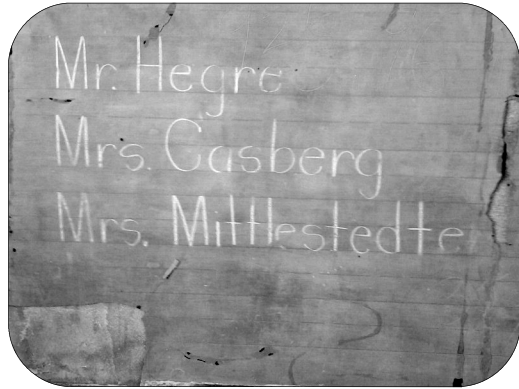 Mr. Hegre
Mrs. Casberg
Mrs. Mittlestedte